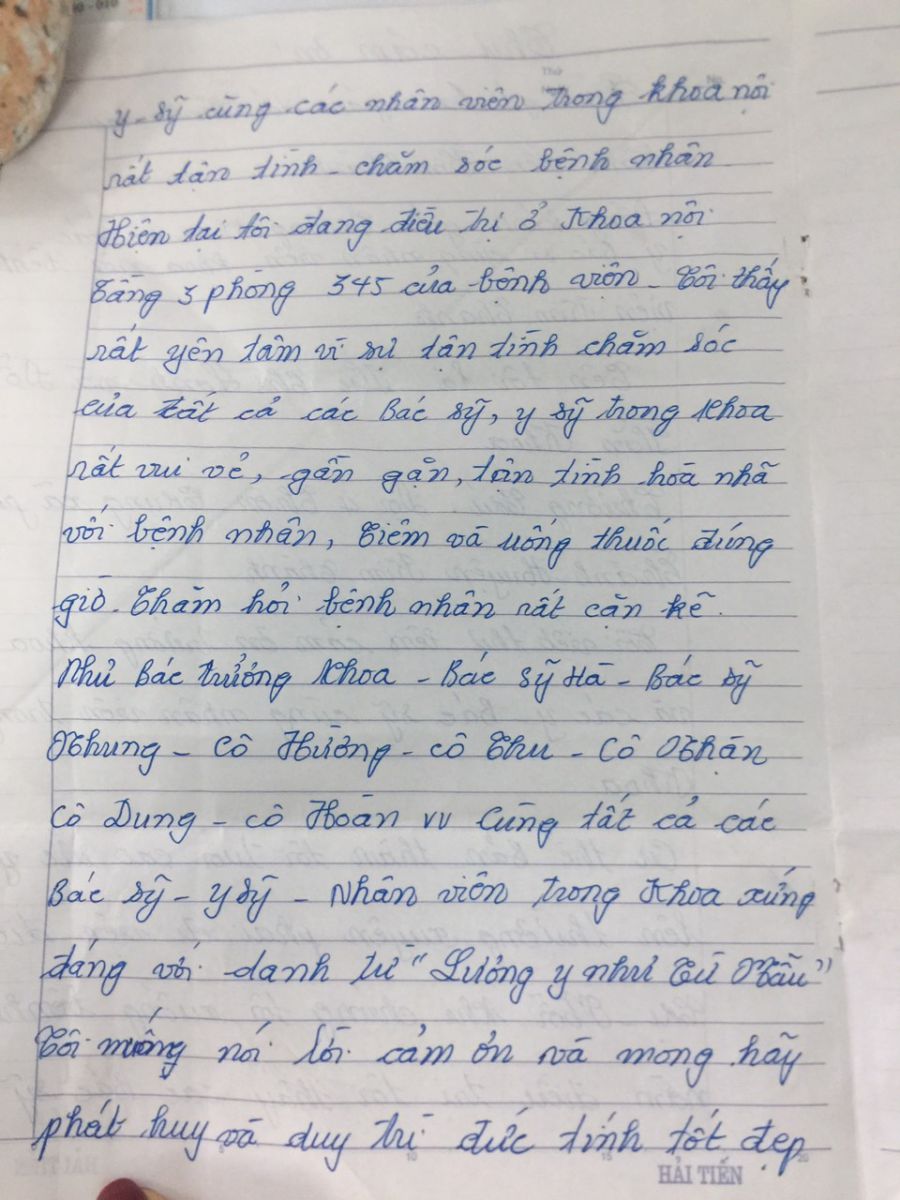 y sỹ cùng các nhân viên trong khoa nội
rất tận tình - chăm sóc bệnh nhân
Hiện tại tôi đang điều trị ở Khoa nội
Tầng 3 phòng 345 của bệnh viện. Tôi thấy
rất yên tâm vì sự tận tình chăm sóc
của tất cả các Bác sỹ, y sỹ trong Khoa
rất vui vẻ, gần gũi, tận tình hoà nhã
với bệnh nhân, Tiêm và uống thuốc đúng
giờ. Thăm hỏi bệnh nhân rất cặn kẽ.
Như Bác trưởng Khoa - Bác sỹ Hà - Bác sỹ
Nhung - Cô Hường - cô Thu - Cô Nhàn
Cô Dung - cô Hoàn vv Cùng tất cả các
Bác sỹ - y sỹ - Nhân viên trong Khoa xứng
đáng với danh từ "Lương y như Từ Mẫu"
Tôi muống nói lời cảm ơn và mong hãy
phát huy và duy trì đức tính tốt đẹp
HẢI TIẾN